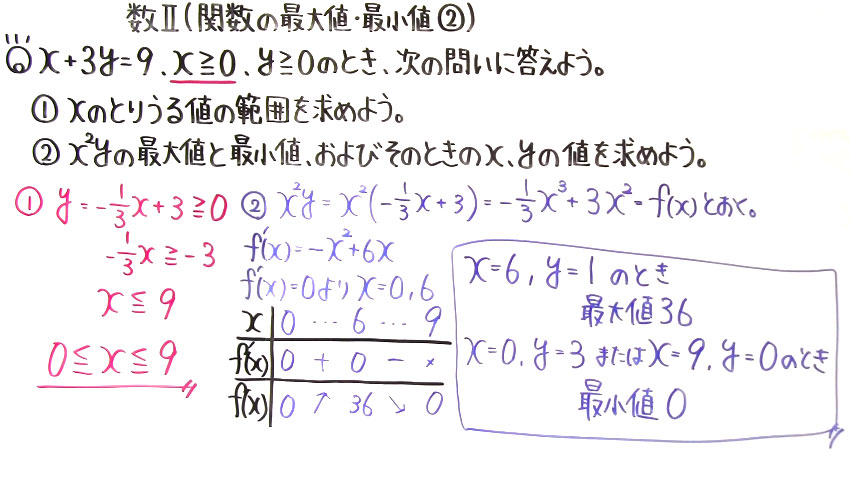 数Ⅱ(関数の最大値・最小値②)
x+3y=9、x≧0、y≧0のとき、次の問いに答えよう。
① xのとりうる値の範囲を求めよう。
② x²yの最大値と最小値、およびそのときのx、yの値を求めよう。
① y=-1/3x+3≧0
-1/3x≧-3
x≦9
0≦x≦9
② x²y=x²(-1/3x+3)=-1/3x³+3x²=f(x)とおく。
f'(x)=-x²+6x
f'(x)=0よりx=0,6
x 0 … 6 … 9
f'(x) 0 + 0 - ×
f(x) 0 ↗ 36 ↘ 0
x=6, y=1のとき
最大値36
x=0, y=3またはx=9, y=0のとき
最小値0